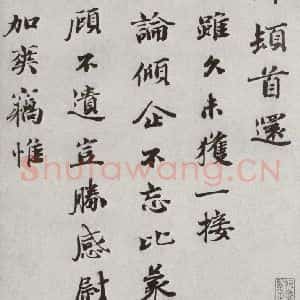 頓首還
雖久未獲一接
論傾企不忘比蒙
顧不遺豈勝感慰
加爽竊惟
Shufawang.CN